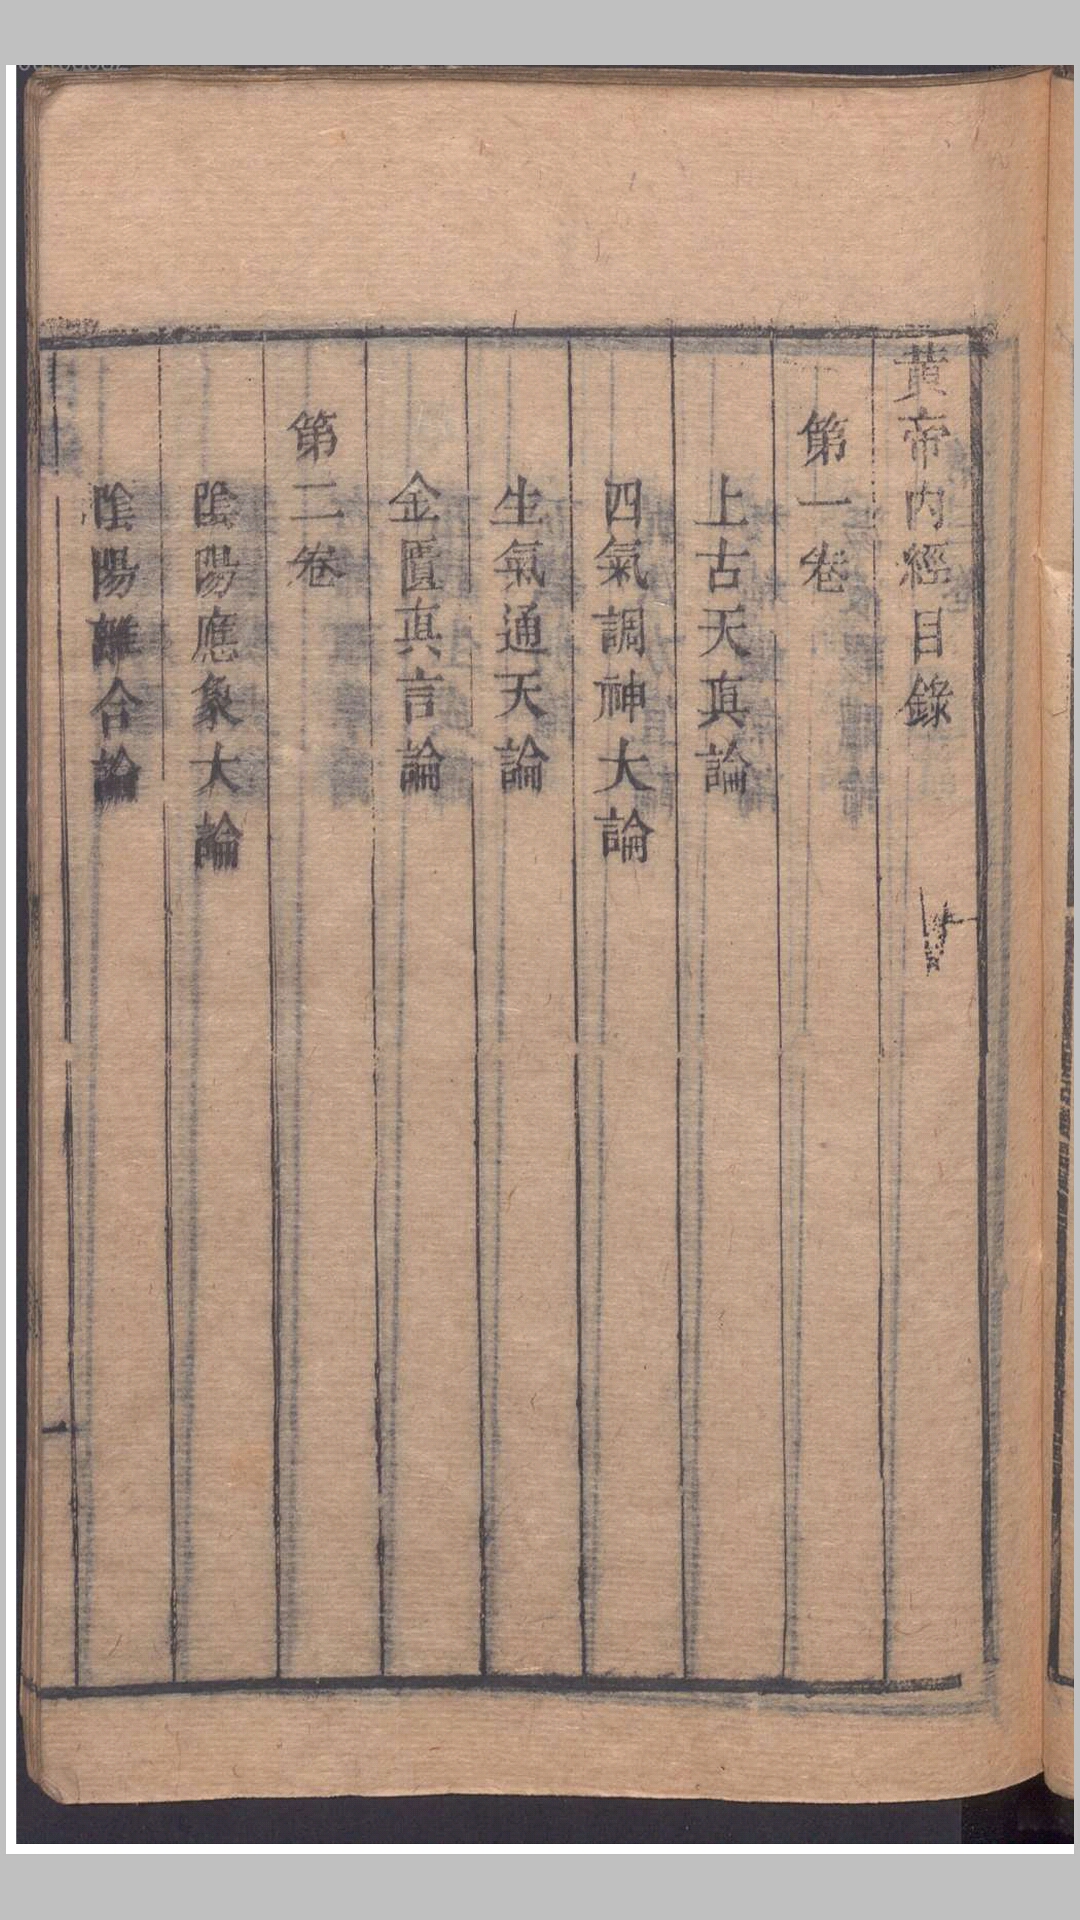 黃帝內經目錄
第一卷
上古天真論
四氣調神大論
生氣通天論
金匱真言論
第二卷
陰陽應象大論
陰陽離合論